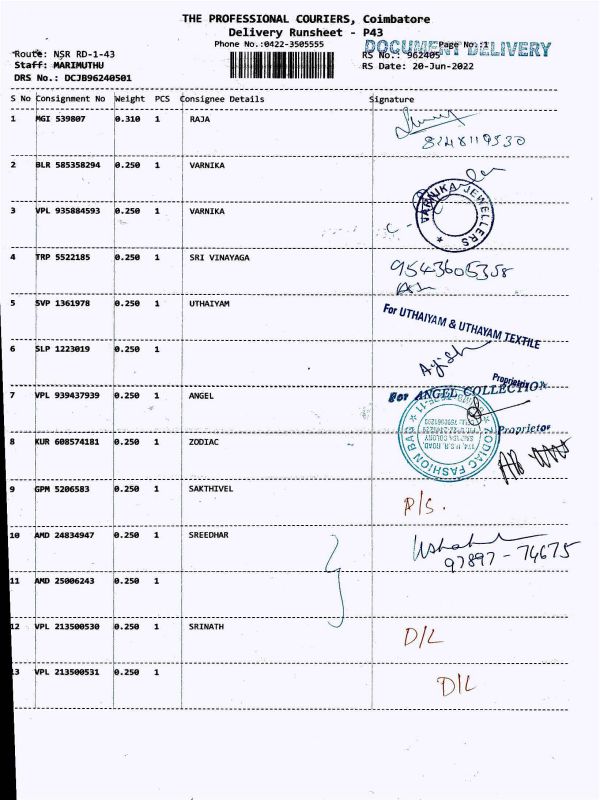 THE PROFESSIONAL COURIERS, Coimbatore
Delivery Runsheet - P43
Phone No.:0422-3505555
DOCUMENT DELIVERY
Page No.:1
Route: NSR RD-1-43
RS No.: 962405
Staff: MARIMUTHU
RS Date: 20-Jun-2022
DRS No.: DCJB96240501
S No Consignment No Weight PCS Consignee Details Signature
1 MGI 539807 0.310 1 RAJA
8248119530
2 BLR 585358294 0.250 1 VARNIKA
VARNIKA JEWELLERS
3 VPL 935884593 0.250 1 VARNIKA
4 TRP 5522185 0.250 1 SRI VINAYAGA
9543605358
5 SVP 1361978 0.250 1 UTHAIYAM
For UTHAIYAM & UTHAYAM TEXTILE
6 SLP 1223019 0.250 1
Proprietrix
7 VPL 939437939 0.250 1 ANGEL
For ANGEL COLLECTION
Proprietor
8 KUR 608574181 0.250 1 ZODIAC
ZODIAC FASHION BAG
9 GPM 5206583 0.250 1 SAKTHIVEL
P/S.
10 AMD 24834947 0.250 1 SREEDHAR
97897-74675
11 AMD 25006243 0.250 1
12 VPL 213500530 0.250 1 SRINATH
D/L
13 VPL 213500531 0.250 1
D/L